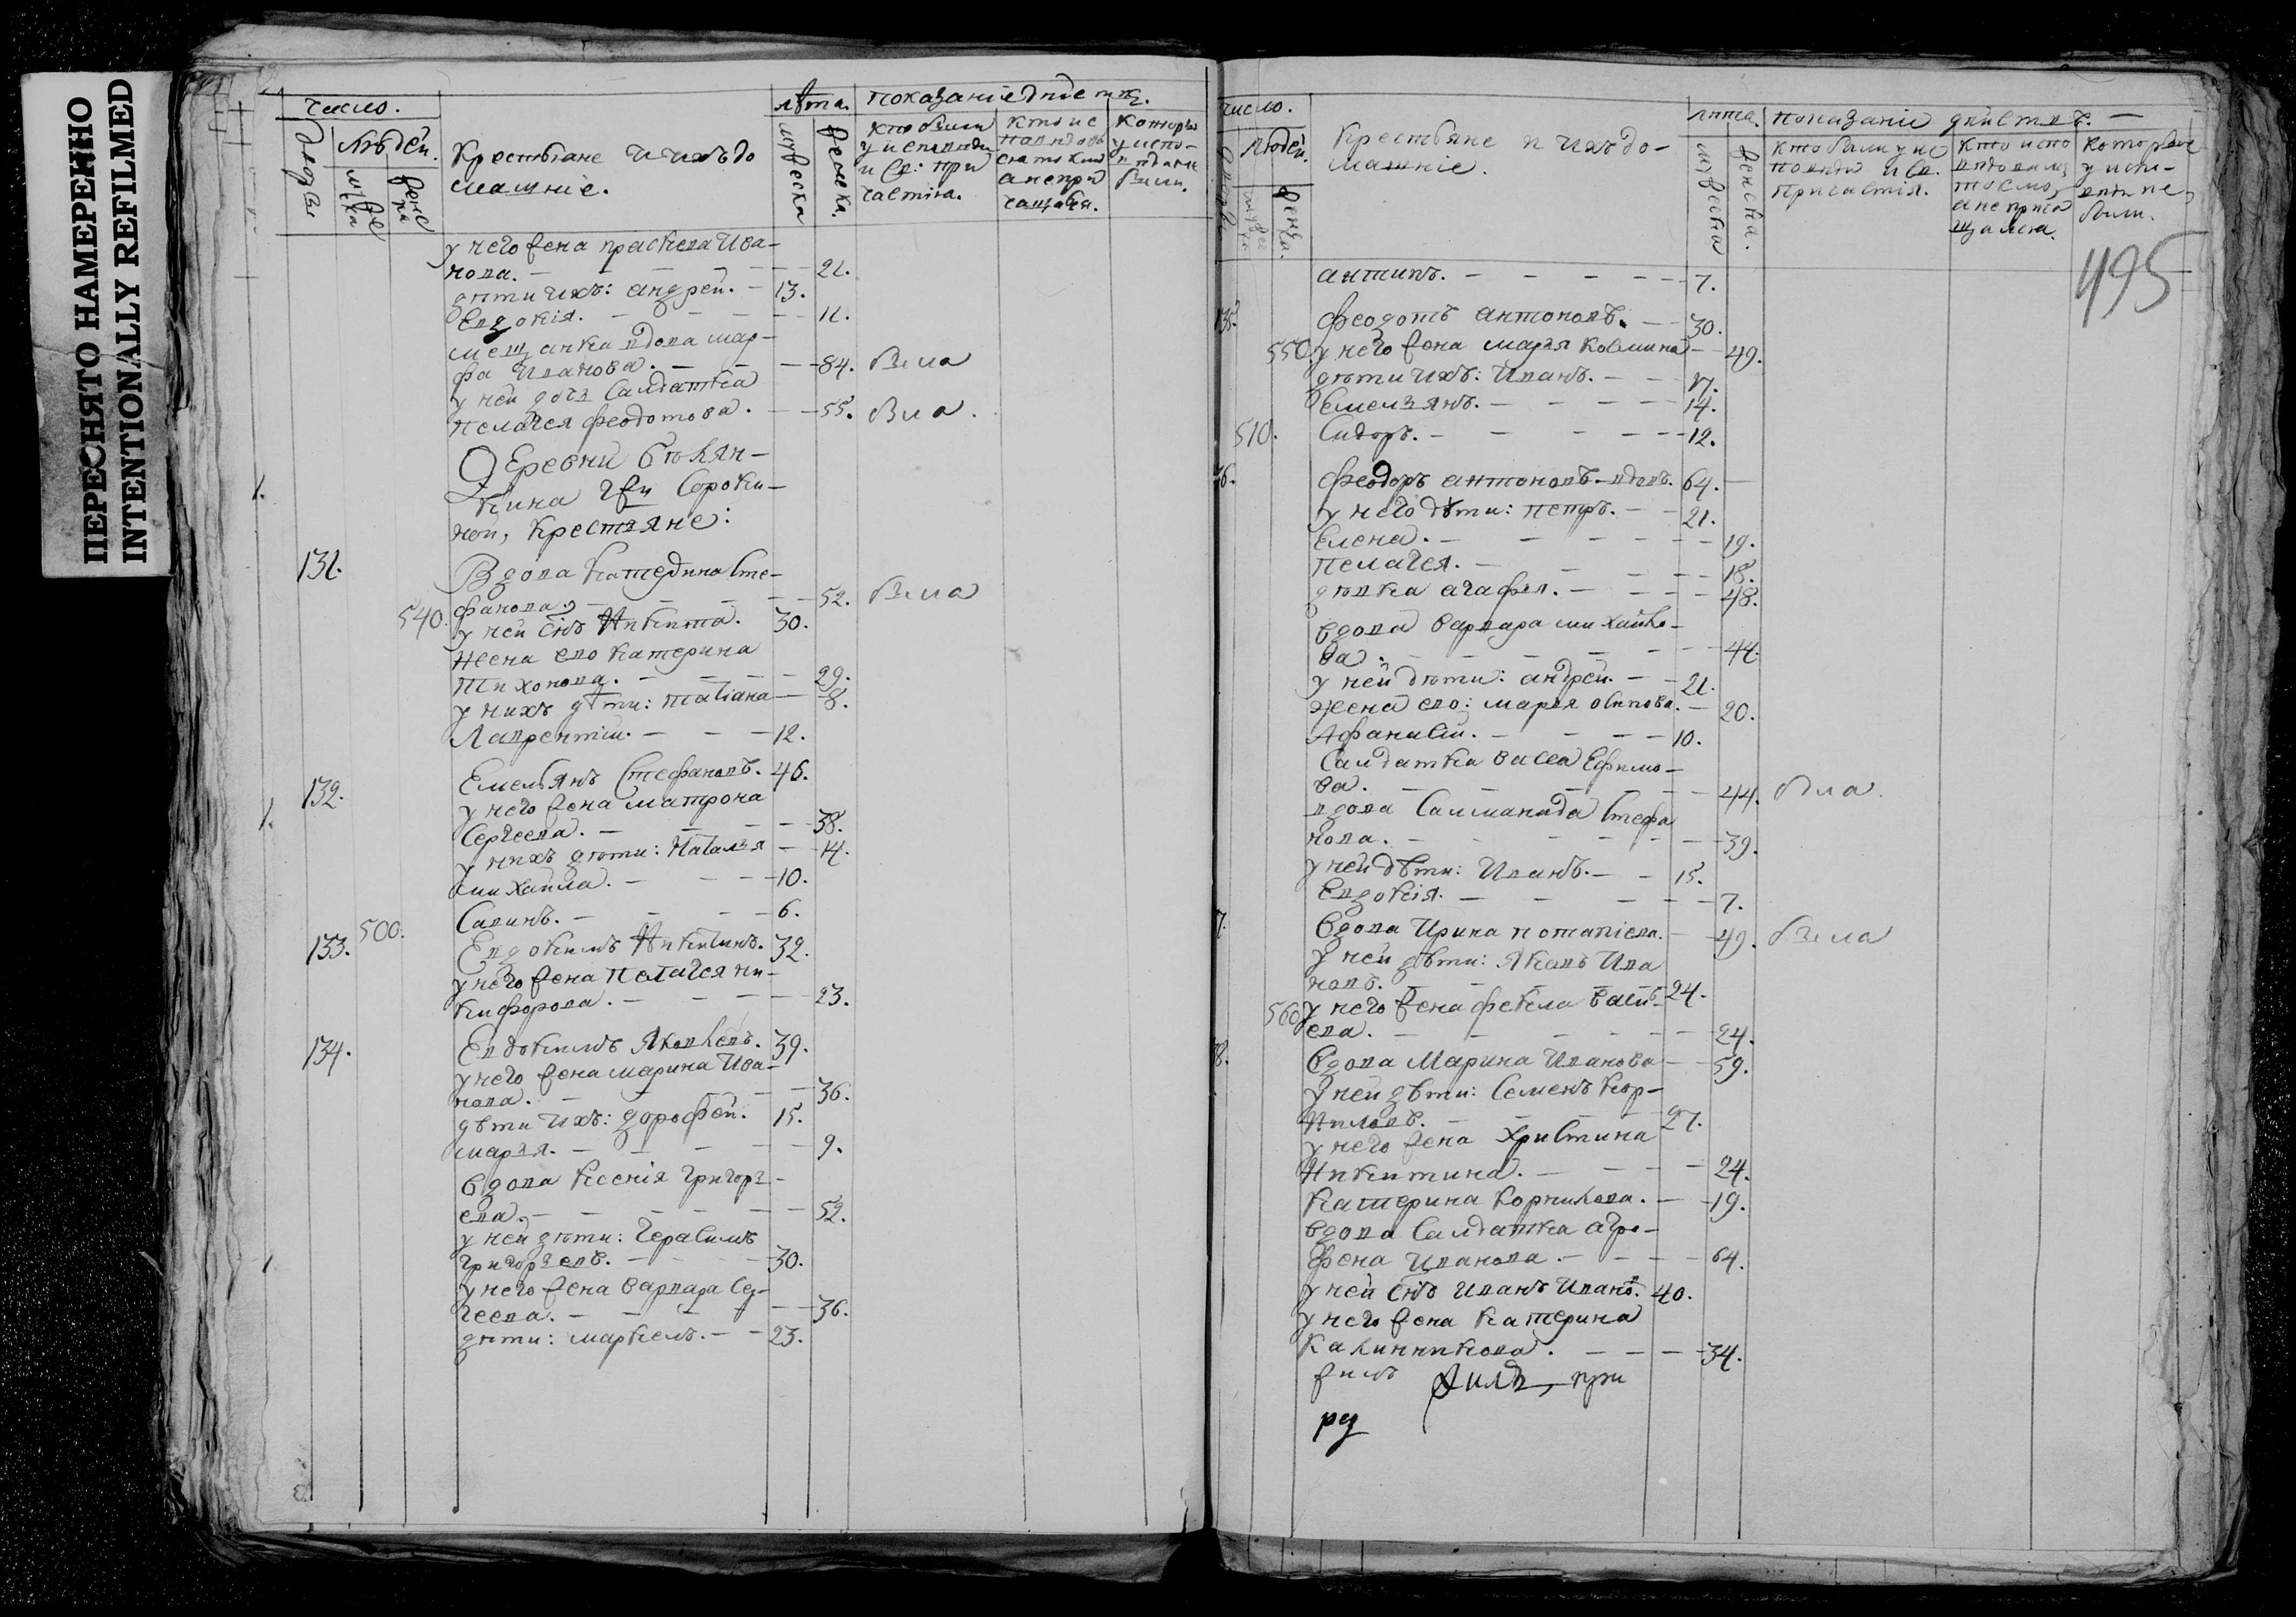 ПЕРЕСНЯТО НАМЕРЕННО
INTENTIONALLY REFILMED
число.
людей.
Крестьяне и ихъ до
машніе.
лѣта.
мужеска
женска.
показаніе
кто были
у исповѣди
и св: при
частія.
у него жена праскева Ива-
нова. 21.
дѣти ихъ: андрей. 13.
Евдокія. 11.
мещанка вдова мар-
фа Иванова. 84. была
у ней дочь салдатка
пелагея феодотова. 55. была.
Деревни
гжи Сороки-
ной, крестьяне:
131.
Вдова катерина Сте-
фанова. 52. была
540. у ней снъ Никита. 30.
жена ево катерина
Тихонова. 29.
у нихъ дѣти: татiана 8.
Лаврентiй. 12.
132. Емельянъ Стефановъ. 46.
у него жена матрона
Сергеева. 38.
у нихъ дѣти: наталья 14.
михайла. 10.
Савинъ. 6.
133. 500. Евдокимъ Никитинъ. 32.
у него жена пелагея ни-
кифорова. 23.
134. Евдокимъ Яковлевъ. 39.
у него жена марина Ива-
нова. 36.
дѣти ихъ: дорофей. 15.
марья. 9.
вдова ксенія григорь-
ева. 52.
у ней дѣти: герасимъ
григорьевъ. 30.
у него жена варвара Сер-
геева. 36.
дѣти: маркелъ. 23.
число.
людей.
женска.
Крестьяне и ихъ до-
машніе.
лѣта.
мужеска
женска.
показаніе
кто были у ис
повѣди и св.
причастія.
кто испо
вѣдались
токмо,
а не прича
щались.
которые
у испо-
вѣди не
были.
495
антипъ. 7.
135. феодотъ антоновъ. 30.
550. у него жена марья козмина 49.
дѣти ихъ: Иванъ. 17.
Емельянъ. 14.
510. Сидоръ. 12.
36. феодоръ антоновъ вдовъ. 64.
у него дѣти: петръ. 21.
Елена. 19.
пелагея. 18.
дѣвка агафья. 48.
вдова варвара михайло-
ва. 44.
у ней дѣти: андрей. 21.
жена ево: марья осипова. 20.
Афанасiй. 10.
Салдатка васса Ефимо-
ва. 44. была.
вдова Саламанида Стефа
нова. 39.
у ней дѣти: Иванъ. 15.
Евдокія. 7.
7. Вдова Ирина потапіева. 49. была
у ней дѣти: Яковъ Ива
новъ. 24.
560 у него жена фекла васил-
ева. 24.
8. Вдова Марина Иванова 59.
у ней дѣти: Семенъ Кор-
ниловъ. 27.
у него жена христина
Никитина. 24.
катерина корнилова. 19.
вдова Салдатка агро-
фена Иванова. 64.
у ней снъ Иванъ Иванов. 40.
у него жена катерина
Калинникова. 34.